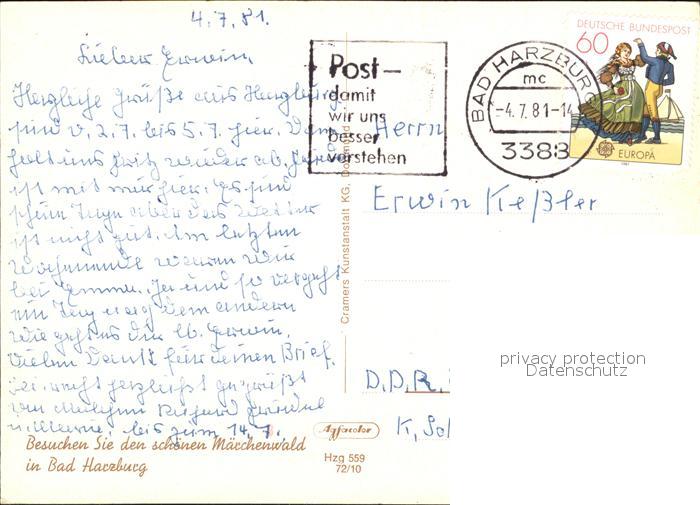 4.7.81.
Lieber Erwin,
Herzliche Grüße aus Harzburg
sind v. 2.7. bis 5.7. hier. Dann
holt uns Fritz wieder ab.
ist mit mir hier. Es sind
schöne Tage aber das Wetter
ist nicht gut. Am letzten
Wochenende waren wir
bei und so vergeht
ein Tag nach dem andern
Wie geht es dir lb. Erwin,
Vielen Dank für deinen Brief.
Sei recht herzlichst gegrüßt
von Richard
bis zum 14.7.
Besuchen Sie den schönen Märchenwald
in Bad Harzburg
Post –
damit
wir uns
besser
verstehen
BAD HARZBURG
mc
-4.7.81-14
3388
DEUTSCHE BUNDESPOST
60
EUROPA
1981
Herrn
Erwin Keßler
D.D.R.
K, Sch
Cramers Kunstanstalt KG, Dortmund
Agfacolor
Hzg 559
72/10
privacy protection
Datenschutz